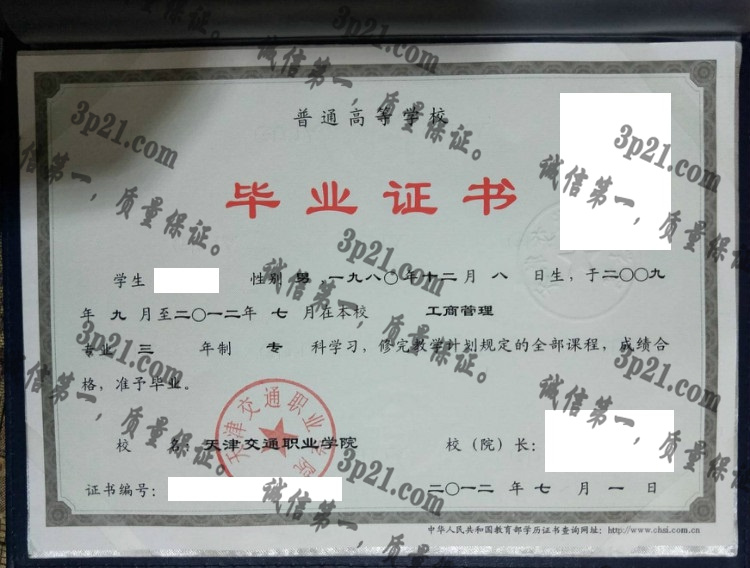 普通高等学校
毕业证书
学生 性别 男 一九八〇年十二月 八 日生，于二〇〇九
年 九 月至二〇一二年 七 月在本校 工商管理
专业 三 年制 专 科学习，修完教学计划规定的全部课程，成绩合
格，准予毕业。
天津交通职业学院
校 名：天津交通职业学院 校（院）长：
证书编号： 二〇一二 年 七 月 一 日
中华人民共和国教育部学历证书查询网址：http://www.chsi.com.cn
3p21.com
诚信第一，质量保证。
3p21.com
诚信第一，质量保证。
3p21.com
诚信第一，质量保证。
3p21.com
诚信第一，质量保证。
3p21.com
诚信第一，质量保证。
3p21.com
诚信第一，质量保证。
3p21.com
诚信第一，质量保证。